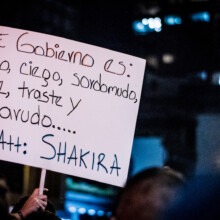 e Gobierno es:
o, ciego, sordomudo,
e, traste y
arudo.....
Att: SHAKIRA